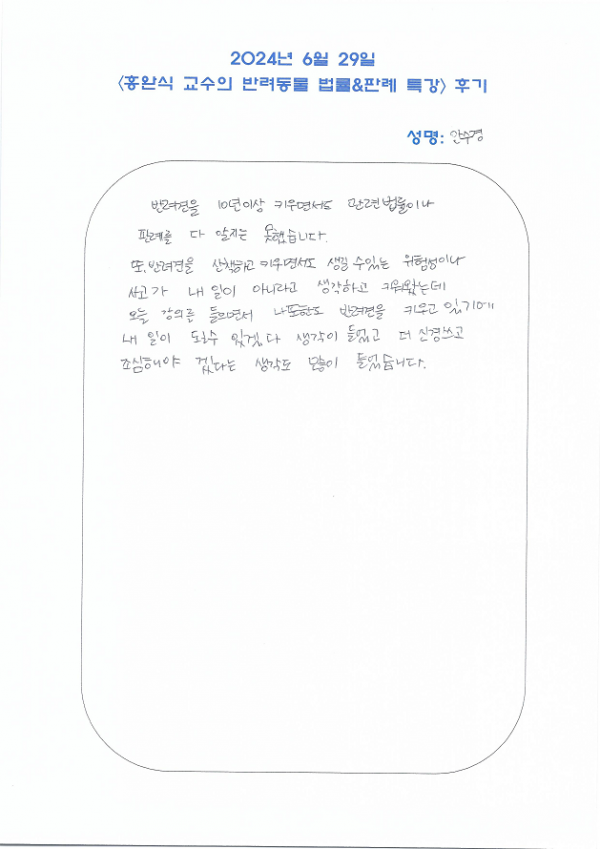 2024년 6월 29일
<홍완식 교수의 반려동물 법률&판례 특강> 후기
성명: 안수경
반려견을 10년이상 키우면서도 관련법률이나
판례를 다 알지는 못했습니다.
또, 반려견을 산책하고 키우면서도 생길 수있는 위험성이나
사고가 내 일이 아니라고 생각하고 키워왔는데
오늘 강의를 들으면서 나또한도 반려견을 키우고 있기에
내 일이 될수 있겠다 생각이 들었고 더 신경쓰고
조심해야 겠다는 생각도 많이 들었습니다.